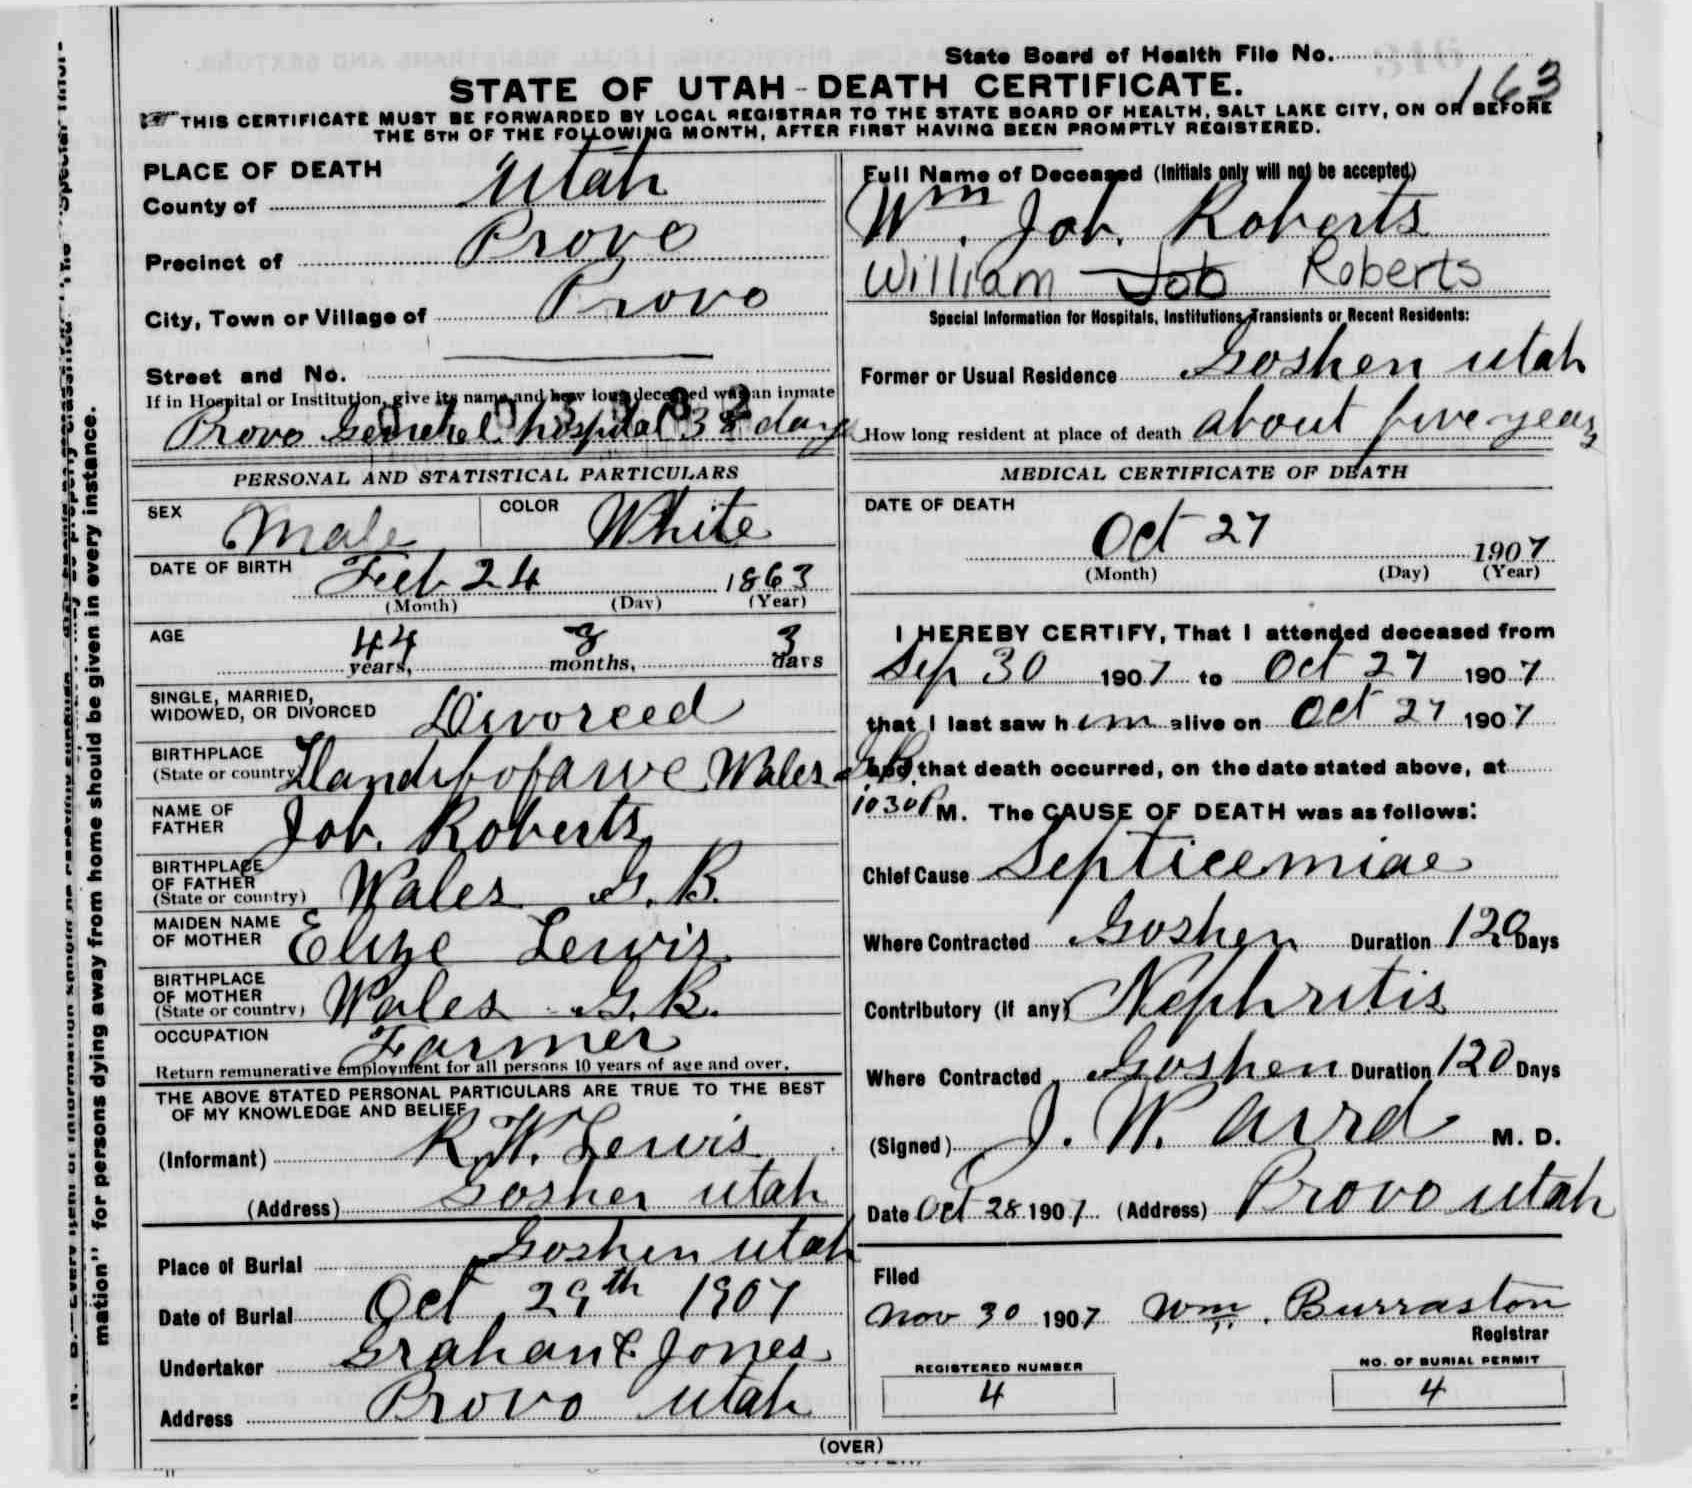 State Board of Health File No.
163
STATE OF UTAH - DEATH CERTIFICATE.
THIS CERTIFICATE MUST BE FORWARDED BY LOCAL REGISTRAR TO THE STATE BOARD OF HEALTH, SALT LAKE CITY, ON OR BEFORE
THE 5TH OF THE FOLLOWING MONTH, AFTER FIRST HAVING BEEN PROMPTLY REGISTERED.
PLACE OF DEATH
County of Utah
Precinct of Provo
City, Town or Village of Provo
Street and No.
If in Hospital or Institution, give its name and how long deceased was an inmate
Provo General hospital days
Full Name of Deceased (Initials only will not be accepted)
Wm. Job. Roberts
William Job Roberts
Special Information for Hospitals, Institutions, Transients or Recent Residents:
Former or Usual Residence Goshen Utah
How long resident at place of death about five years
PERSONAL AND STATISTICAL PARTICULARS
SEX Male COLOR White
DATE OF BIRTH Feb 24 1863
(Month) (Day) (Year)
AGE 44 years, 8 months, 3 days
SINGLE, MARRIED,
WIDOWED, OR DIVORCED Divorced
BIRTHPLACE
(State or country) Wales G.B.
NAME OF
FATHER Job. Roberts
BIRTHPLACE
OF FATHER
(State or country) Wales G. B.
MAIDEN NAME
OF MOTHER Elize Lewis
BIRTHPLACE
OF MOTHER
(State or country) Wales G. B.
OCCUPATION Farmer
Return remunerative employment for all persons 10 years of age and over.
THE ABOVE STATED PERSONAL PARTICULARS ARE TRUE TO THE BEST
OF MY KNOWLEDGE AND BELIEF
(Informant) R. W. Lewis
(Address) Goshen Utah
Place of Burial Goshen Utah
Date of Burial Oct 29th 1907
Undertaker Graham & Jones
Address Provo Utah
MEDICAL CERTIFICATE OF DEATH
DATE OF DEATH
Oct 27 1907
(Month) (Day) (Year)
I HEREBY CERTIFY, That I attended deceased from
Sep 30 1907 to Oct 27 1907
that I last saw him alive on Oct 27 1907
and that death occurred, on the date stated above, at
10 30 P M. The CAUSE OF DEATH was as follows:
Chief Cause Septicemiae
Where Contracted Goshen Duration 120 Days
Contributory (if any) Nephritis
Where Contracted Goshen Duration 120 Days
(Signed) J. W. Aird M. D.
Date Oct 28 1907 (Address) Provo Utah
Filed
Nov 30 1907 Wm. Burraston
Registrar
REGISTERED NUMBER
4
NO. OF BURIAL PERMIT
4
(OVER)
mation" for persons dying away from home should be given in every instance.